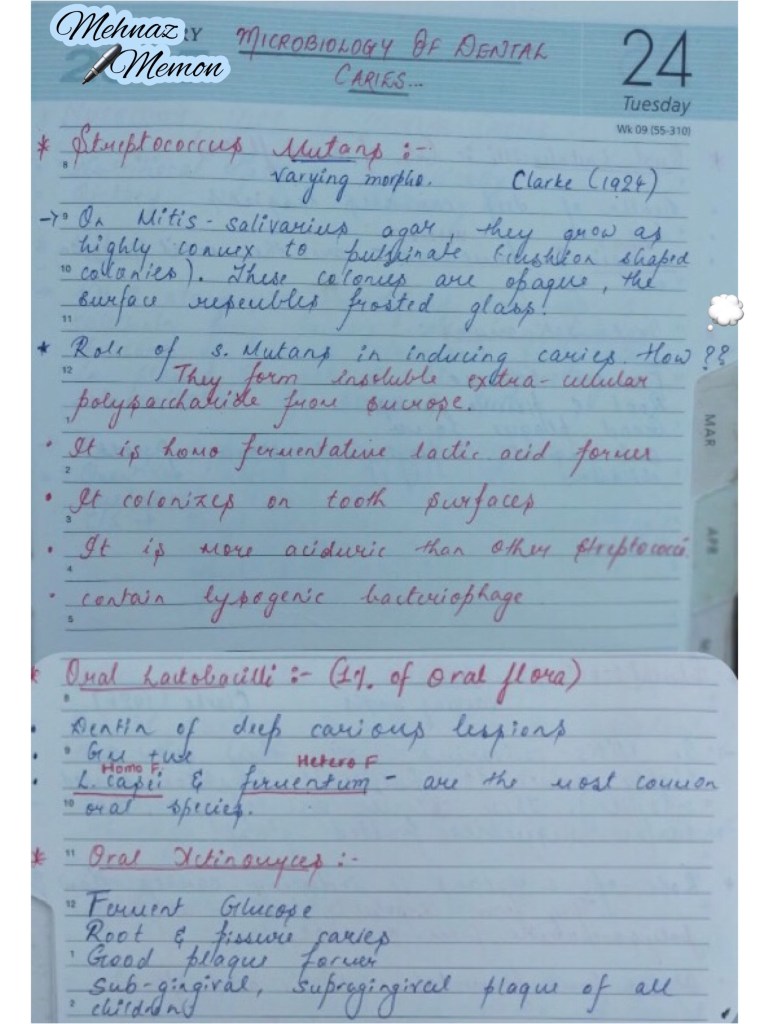 Mehnaz
Memon
RY
MICROBIOLOGY OF DENTAL
CARIES...
24
Tuesday
Wk 09 (55-310)
* Streptococcus Mutans :-
8
varying morpho. Clarke (1924)
→ 9 On Mitis-salivarius agar, they grow as
highly convex to pulvinate (cushion shaped
10 colonies). These colonies are opaque, the
surface resembles frosted glass.
11
* Role of S. Mutans in inducing caries. How ??
12 They form insoluble extra-cellular
polysaccharide from sucrose.
1
• It is homo fermentative lactic acid former
2
• It colonizes on tooth surfaces
3
• It is more aciduric than other streptococci.
4
• contain lysogenic bacteriophage
5
MAR
APR
M
* Oral Lactobacilli :- (1% of oral flora)
8
• Dentin of deep carious lessions
• 9 Gm +ve
Homo F. Hetero F
• L. casei & fermentum - are the most common
10 oral species.
* 11 Oral Actinomyces :-
12 Ferment Glucose
Root & fissure caries
1 Good plaque former
Sub-gingival, supragingival plaque of all
2 children